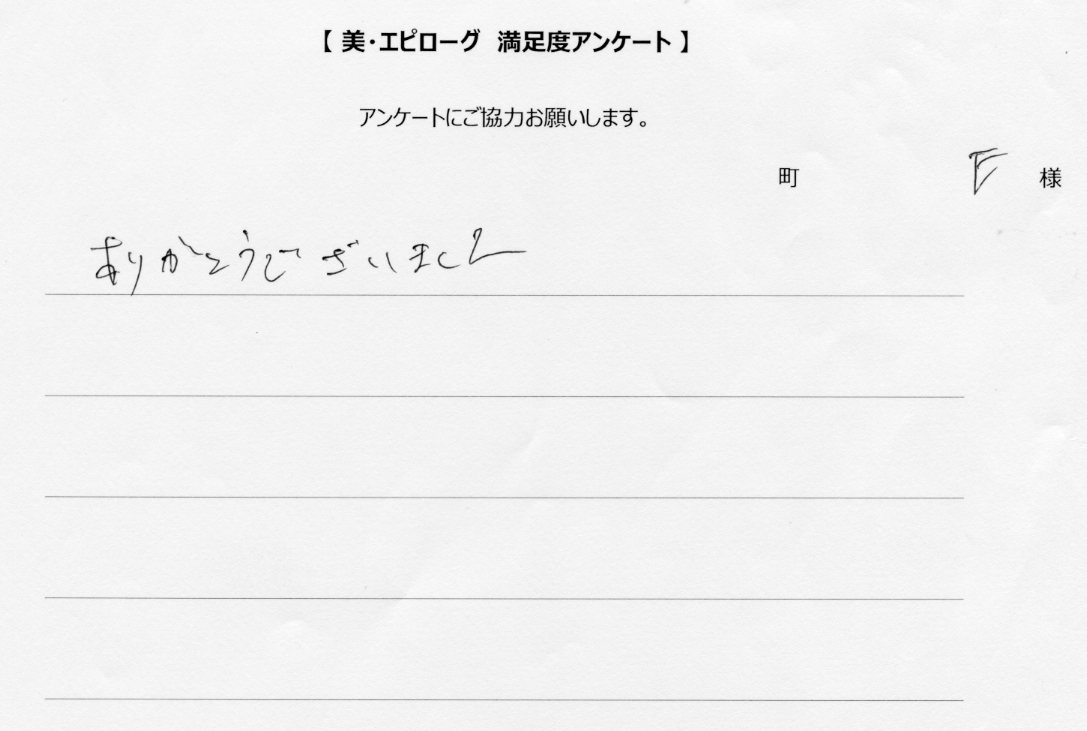 【 美・エピローグ 満足度アンケート 】
アンケートにご協力お願いします。
町 E 様
ありがとうございました